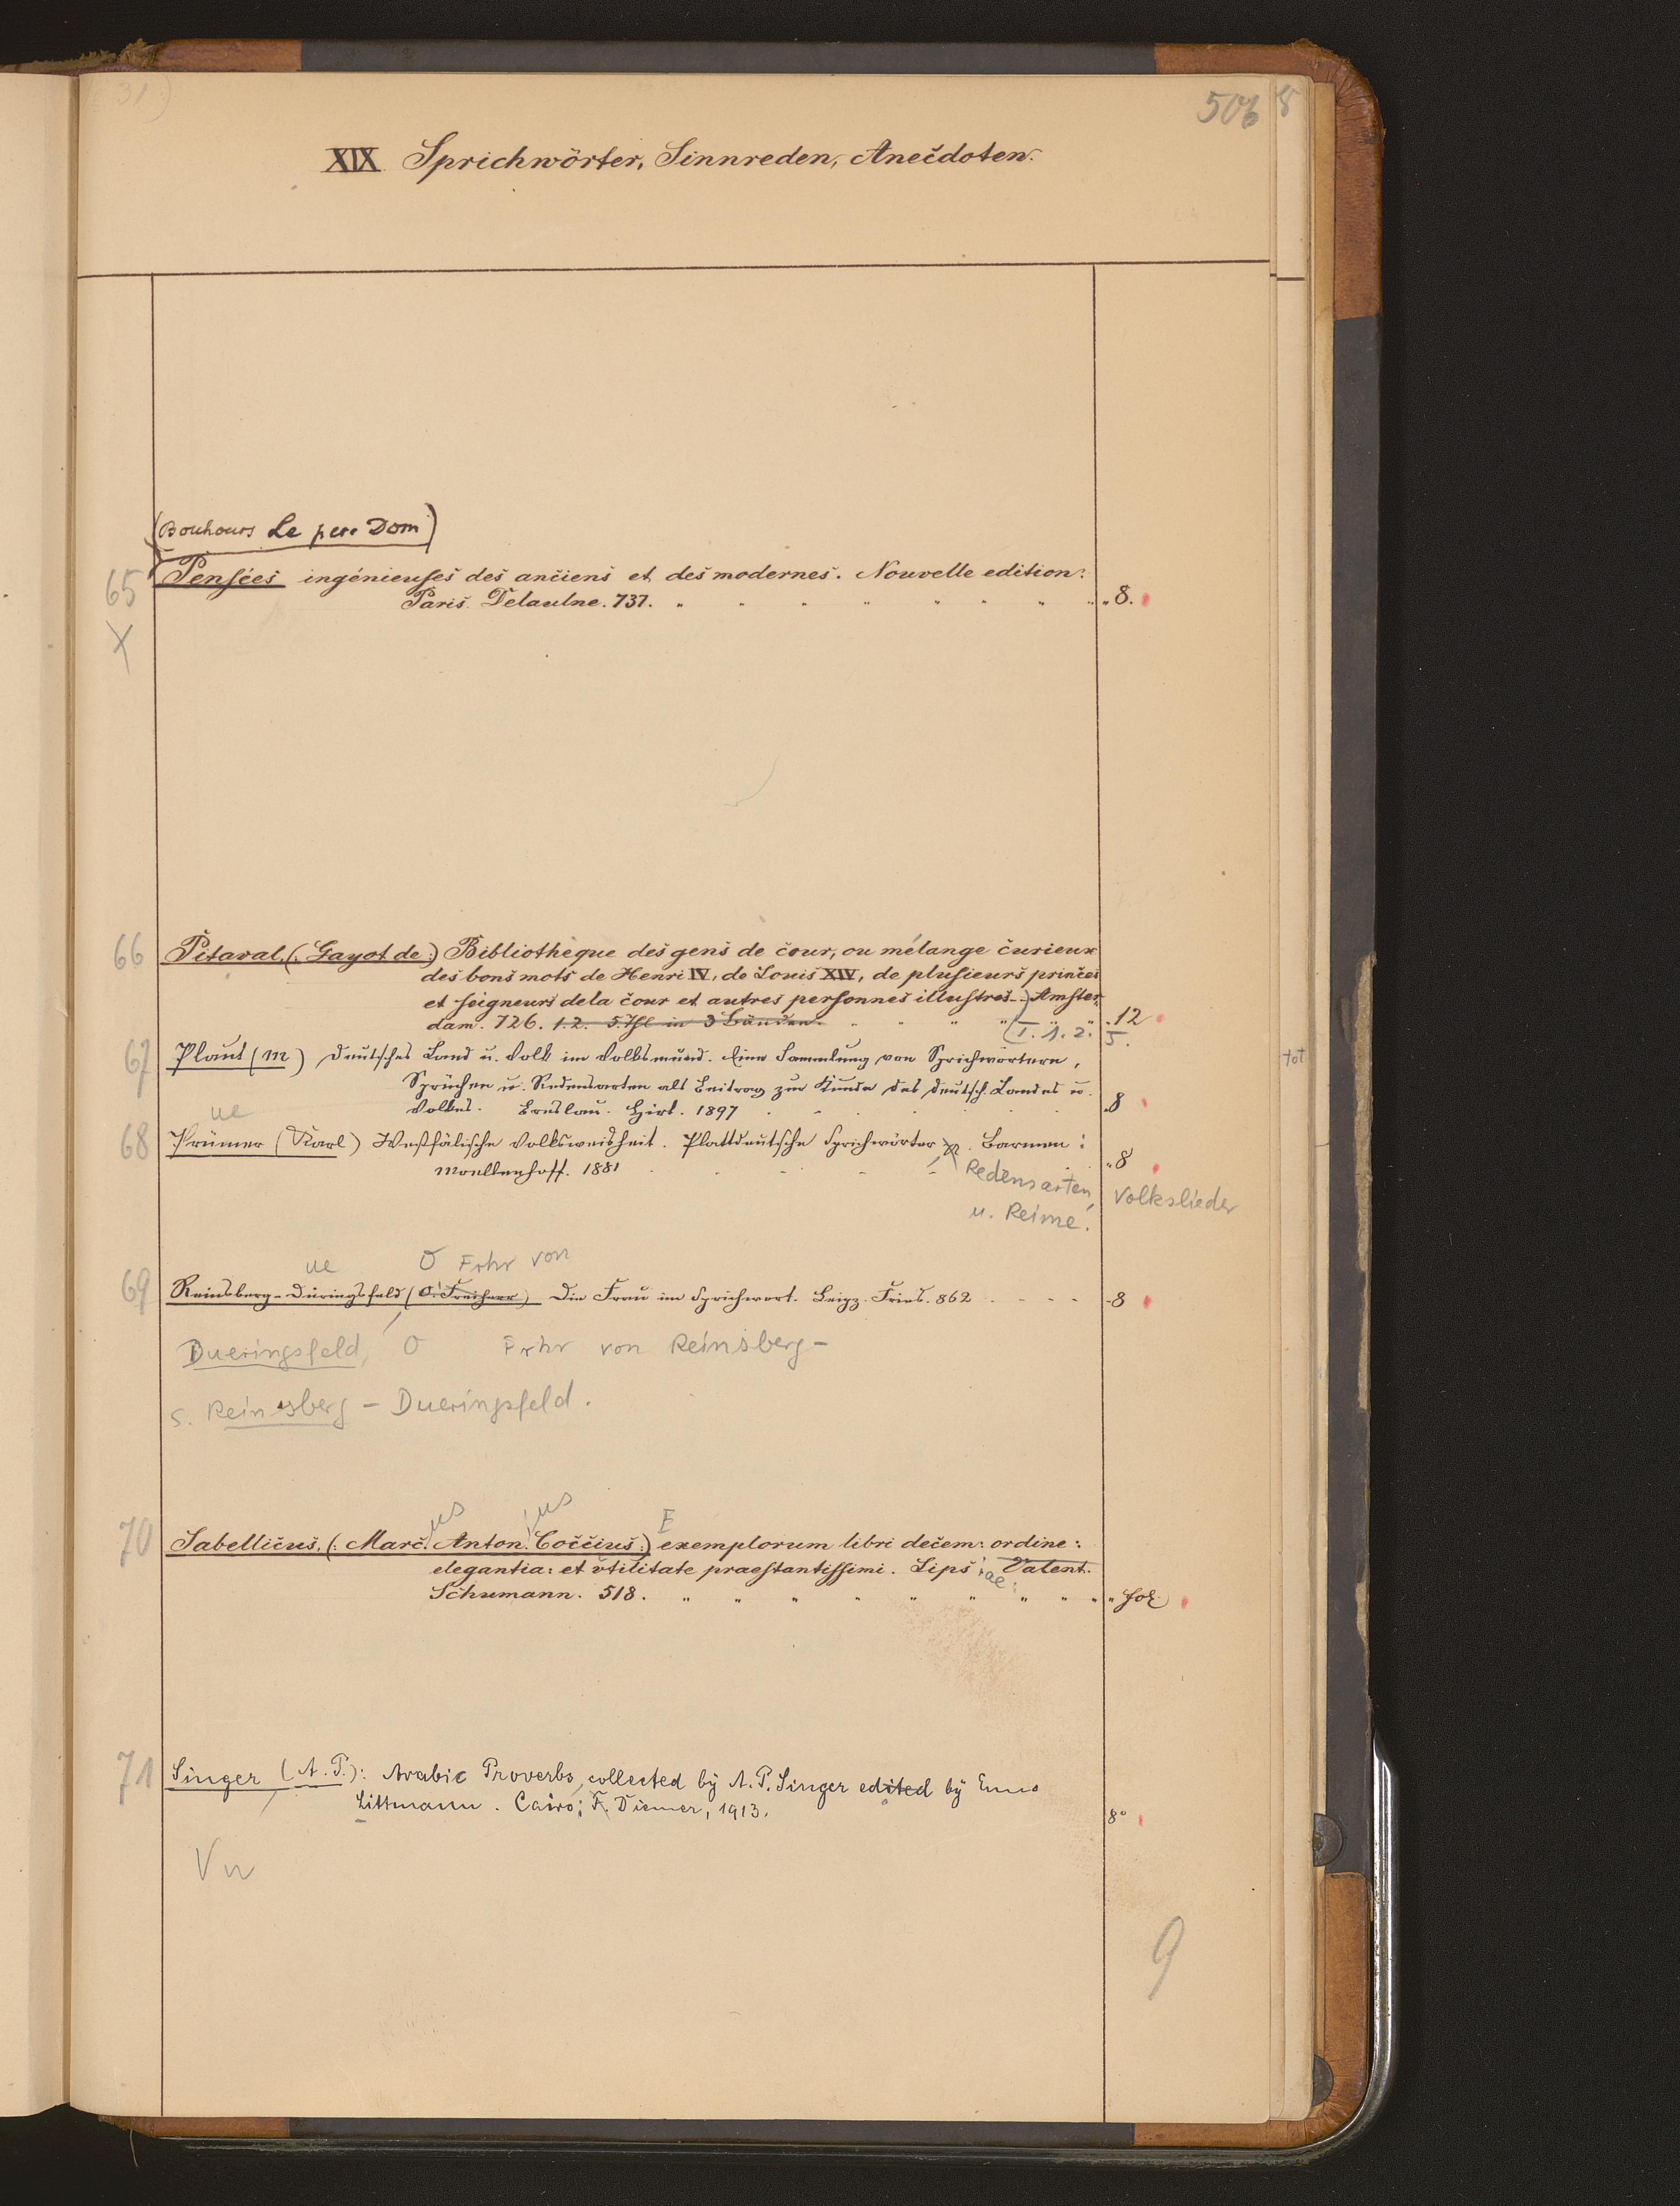 31)
506
8
XIX. Sprichwörter, Sinnreden, Anecdoten.
(Bouhours Le pere Dom)
65 Pensées ingénieuses des anciens et des modernes. Nouvelle edition:
Paris. Delaulne. 737. " " " " " " " " 8.
X
66 Pitaval, (: Gayot de :) Bibliothèque des gens de cour, ou mélange curieux
des bons mots de Henri IV, de Louis XIV, de plusieurs princes
et seigneurs de la cour et autres personnes illustres - ) Amster,
dam. 726. 1.2. 5. Thl in 3 Bänden. " " " " " " 12
(I. 1. 2. 5.
67 Plaut (M) Deutsches Land u. Volk im Volksmund. Eine Sammlung von Sprichwörtern,
Sprüchen u. Redensarten als Beitrag zur Kunde des deutsch. Landes u.
Volkes. Breslau. Hirt. 1897 . . . . . . 8
ue
68 Prümer (Karl) Westfälische Volksweisheit. Plattdeutsche Sprichwörter, Barmen:
Moellenhoff. 1881 . . . . . . 8
Redensarten, Volkslieder
u. Reime.
ue O Frhr von
69 Reinsberg-Düringsfeld (O. Freiherr) Die Frau im Sprichwort. Leipz. Fries. 862 . - - - 8
Dueringsfeld, O Frhr von Reinsberg-
s. Reinsberg - Dueringsfeld.
us ius E
70 Sabellicus, (: Marc. Anton. Coccius :) exemplorum libri decem: ordine:
elegantia: et vtilitate praestantissimi. Lips: ae: Valent.
Schumann. 518. " " " " " " " " " fol.
71 Singer (A. P.): Arabic Proverbs, collected by A. P. Singer edited by Enno
Littmann. Cairo; F. Diemer, 1913.
8°
tot
9